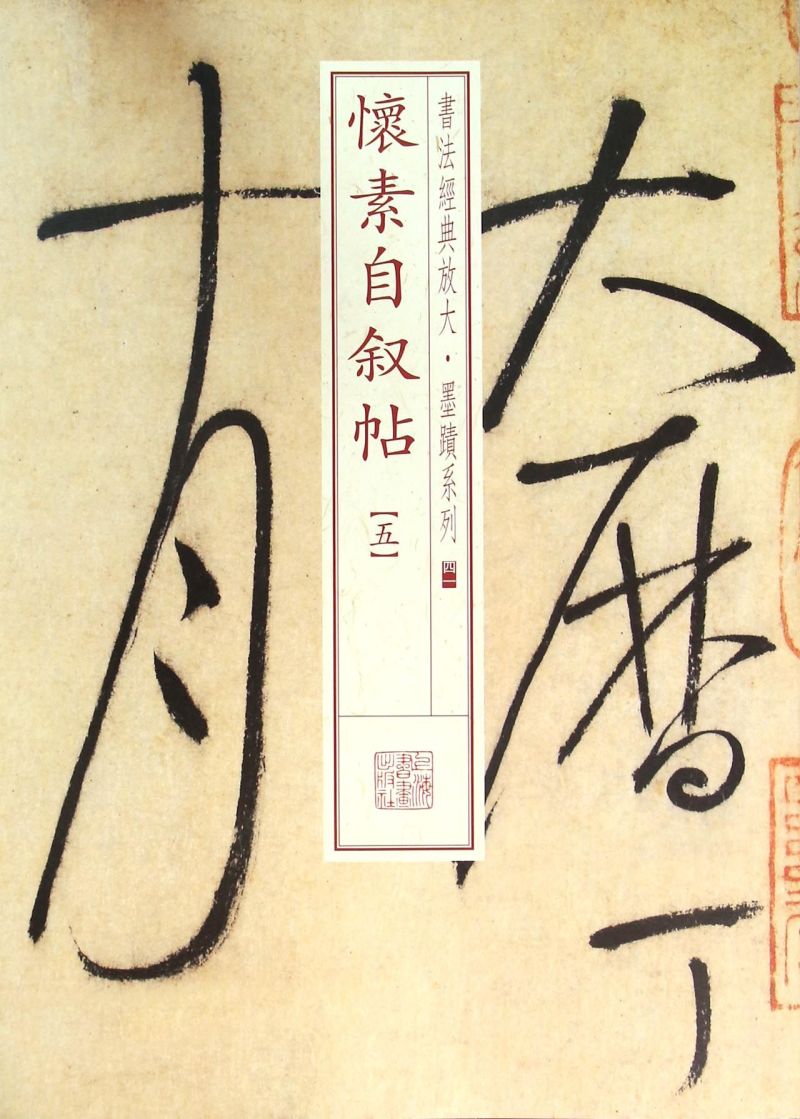 大曆丁
書法經典放大·墨蹟系列 四一
懷素自叙帖【五】
上海
書畫
出版社
十月